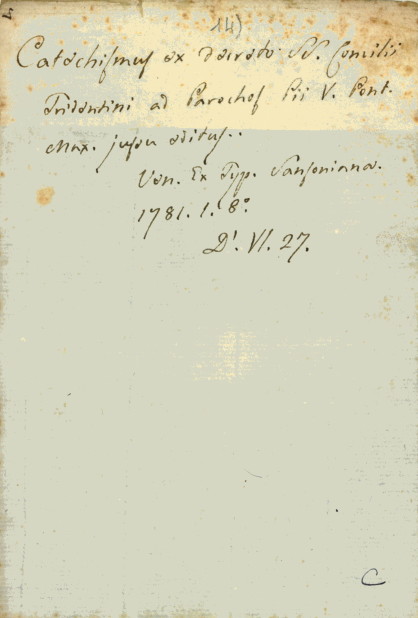 14)
Catechismus ex decreto SS. Concilii
Tridentini ad Parochos Pii V. Pont.
Max. jussu editus..
Ven. Ex Typ. Sansoniana.
1781. 1. 8º
D'. VI. 27.
C